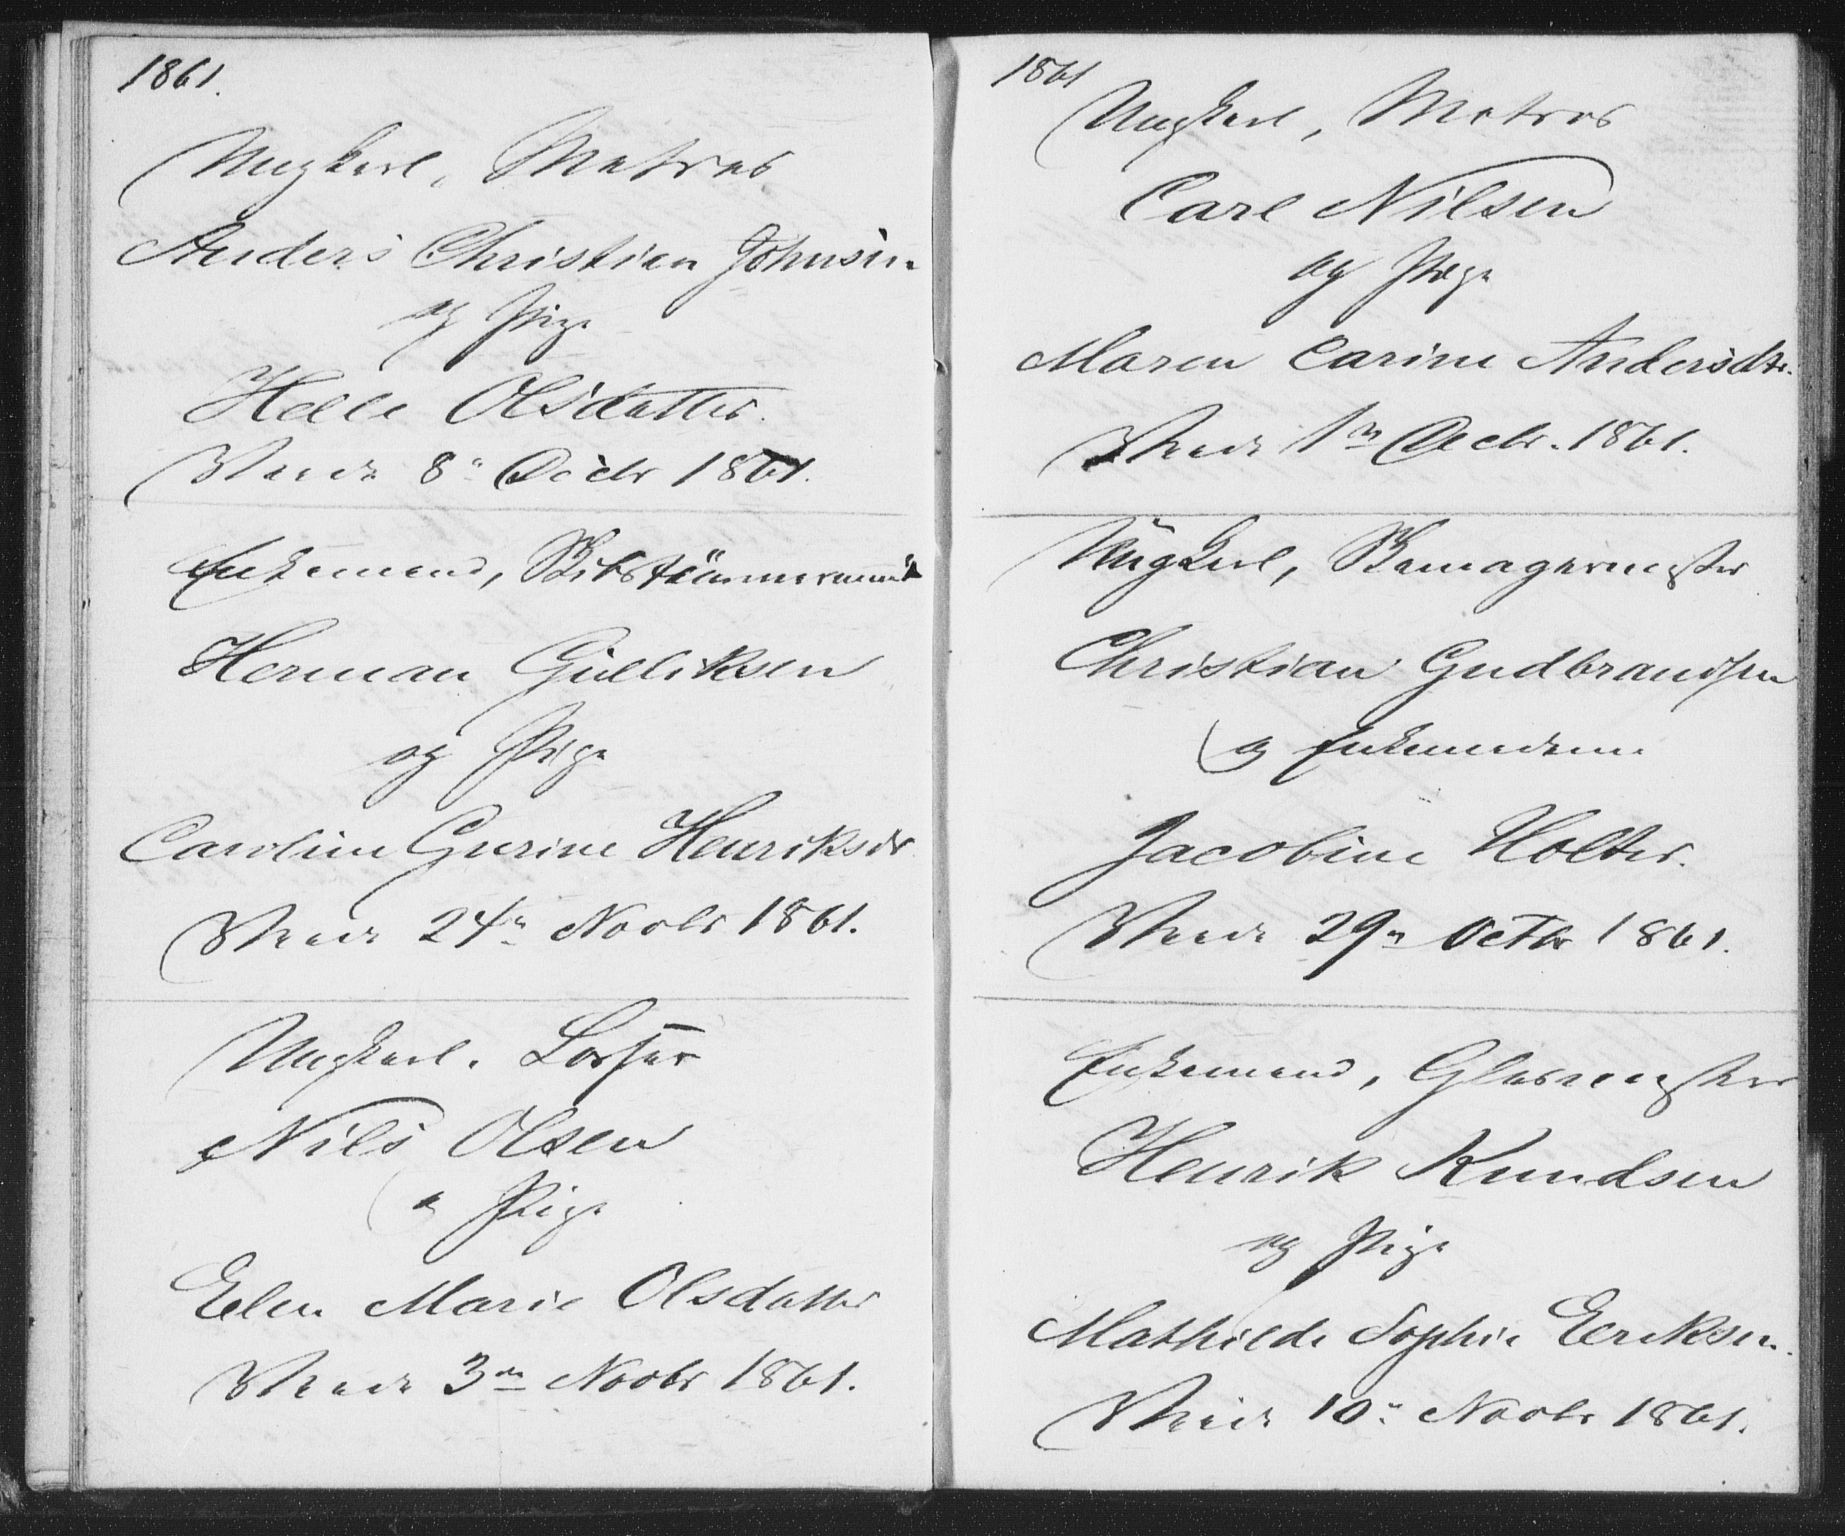 1861.
Ungkarl, Matros
Anders Christian Johnsen
og Pige
Helle Olsdatter.
Viede 8de Decbr 1861.
Enkemand, Skibstømmermand
Herman Gulliksen
og Pige
Caroline Gurine Henriksdr
Viede 24de Novbr 1861.
Ungkarl. Lods
Nils Olsen
og Pige
Elen Marie Olsdatter
Viede 3die Novbr 1861.
1861
Ungkarl, Matros
Carl Nilsen
og Pige
Maren Carine Andersdtr.
Viede 1ste Decbr. 1861.
Ungkarl, Skomagermester
Christian Gudbrandsen
og Enkemadame
Jacobine Holter.
Viede 29de Octbr 1861.
Enkemand, Glasmester
Henrik Knudsen
og Pige
Mathilde Sophie Eriksen.
Viede 10de Novbr 1861.